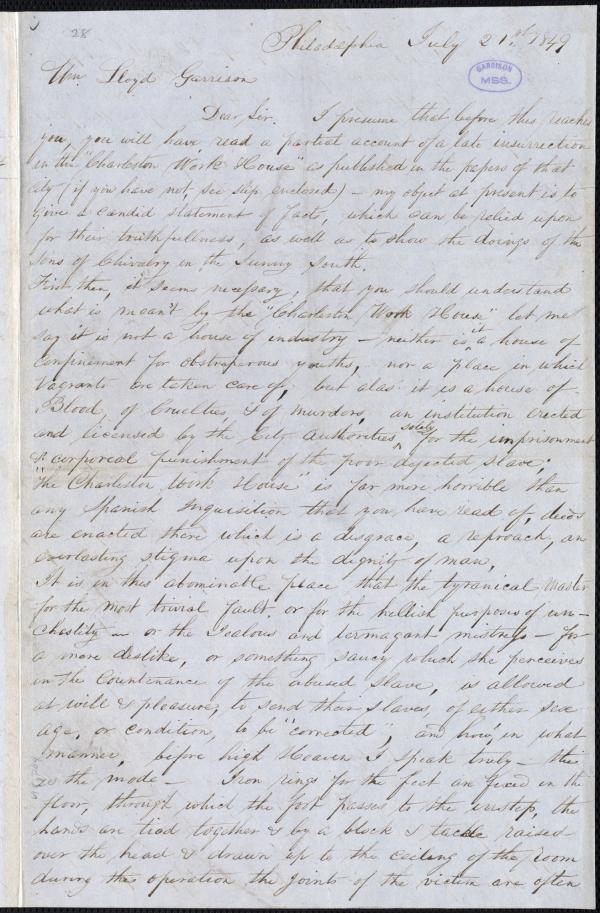 28
Philadelphia July 21.st 1849
GARRISON
MSS.
Wm. Lloyd Garrison
Dear Sir. I presume that before this reaches
you, you will have read a partial account of a late insurrection
in the "Charleston Work House" as published in the papers of that
city (if you have not, see slip enclosed) – my object at present is to
give a candid statement of facts, which can be relied upon
for their truthfullness, as well as to show the doings of the
Sons of Chivalry in the Sunny South.
First then, it seems necessary, that you should understand
what is meant by the "Charleston Work House" let me
say it is not a house of industry – neither is it a house of
confinement for obstraperous youths, nor a place in which
Vagrants are taken care of, but alas it is a house of
Blood, of Cruelties, & of murders, an institution erected
and licensed by the City Authorities, solely for the imprisonment
& corporeal punishment of the poor dejected slave;
"the Charleston Work House" is far more horrible than
any Spanish Inquisition that you have read of, deeds
are enacted there which is a disgrace, a reproach, an
everlasting stigma upon the dignity of man,
It is in this abominable place that the tyranical Master
for the most trivial fault. or for the hellish purposes of un-
chastity – or the Jealous and termagant mistress – for
a mere dislike, or something saucy which she perceives
in the Countenance of the abused slave, is allowed
at will & pleasure, to send their slaves, of either sex
age, or condition, to be "corrected", and how, in what
manner, before high Heaven I speak truly – this
is the mode – Iron rings for the feet are fixed in the
floor, through which the foot passes to the instep, the
hands are tied together & by a block & tackle raised
over the head & drawn up to the ceiling of the room
during this operation the joints of the victim are often